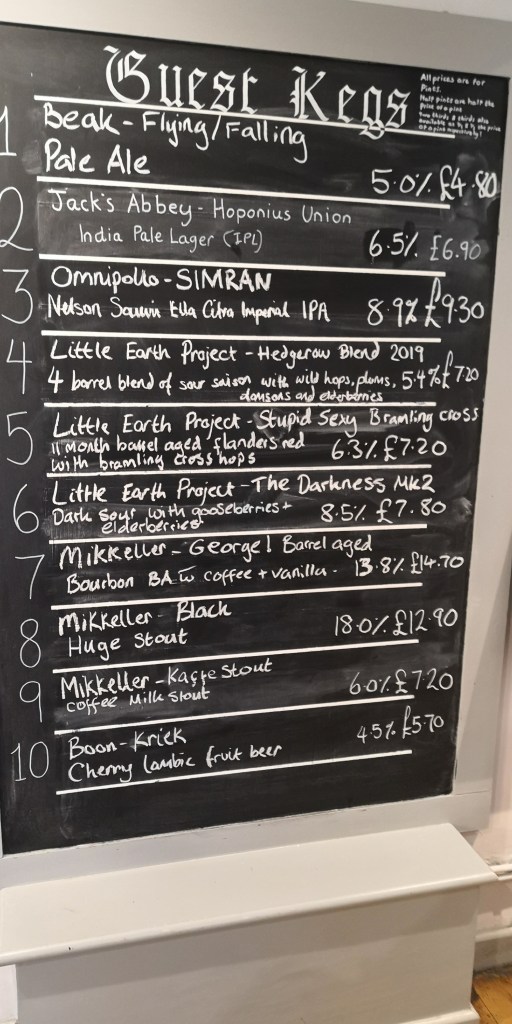 Guest Kegs
All prices are for
Pints.
Half pints are half the
price of a pint
1
Beak - Flying/Falling
Pale Ale
5.0% £4.80
2
Jack's Abbey - Hoponius Union
India Pale Lager (IPL)
6.5% £6.90
3
Omnipollo - SIMRAN
Nelson Sauvin Ella Citra Imperial IPA 8.9% £9.30
4
Little Earth Project - Hedgerow Blend 2019
4 barrel blend of sour saison with wild hops, plums, 5.4% £7.20
damsons and elderberries
5
Little Earth Project - Stupid Sexy Bramling Cross
11 month barrel aged flanders red
with bramling cross hops 6.3% £7.20
6
Little Earth Project - The Darkness Mk2
Dark sour with gooseberries +
elderberries 8.5% £7.80
7
Mikkeller - George! Barrel aged
Bourbon BA w coffee + vanilla - 13.8% £14.70
8
Mikkeller - Black
Huge Stout 18.0% £12.90
9
Mikkeller - Kaffe Stout
Coffee Milk Stout 6.0% £7.20
10
Boon - Kriek
Cherry lambic fruit beer 4.5% £5.70